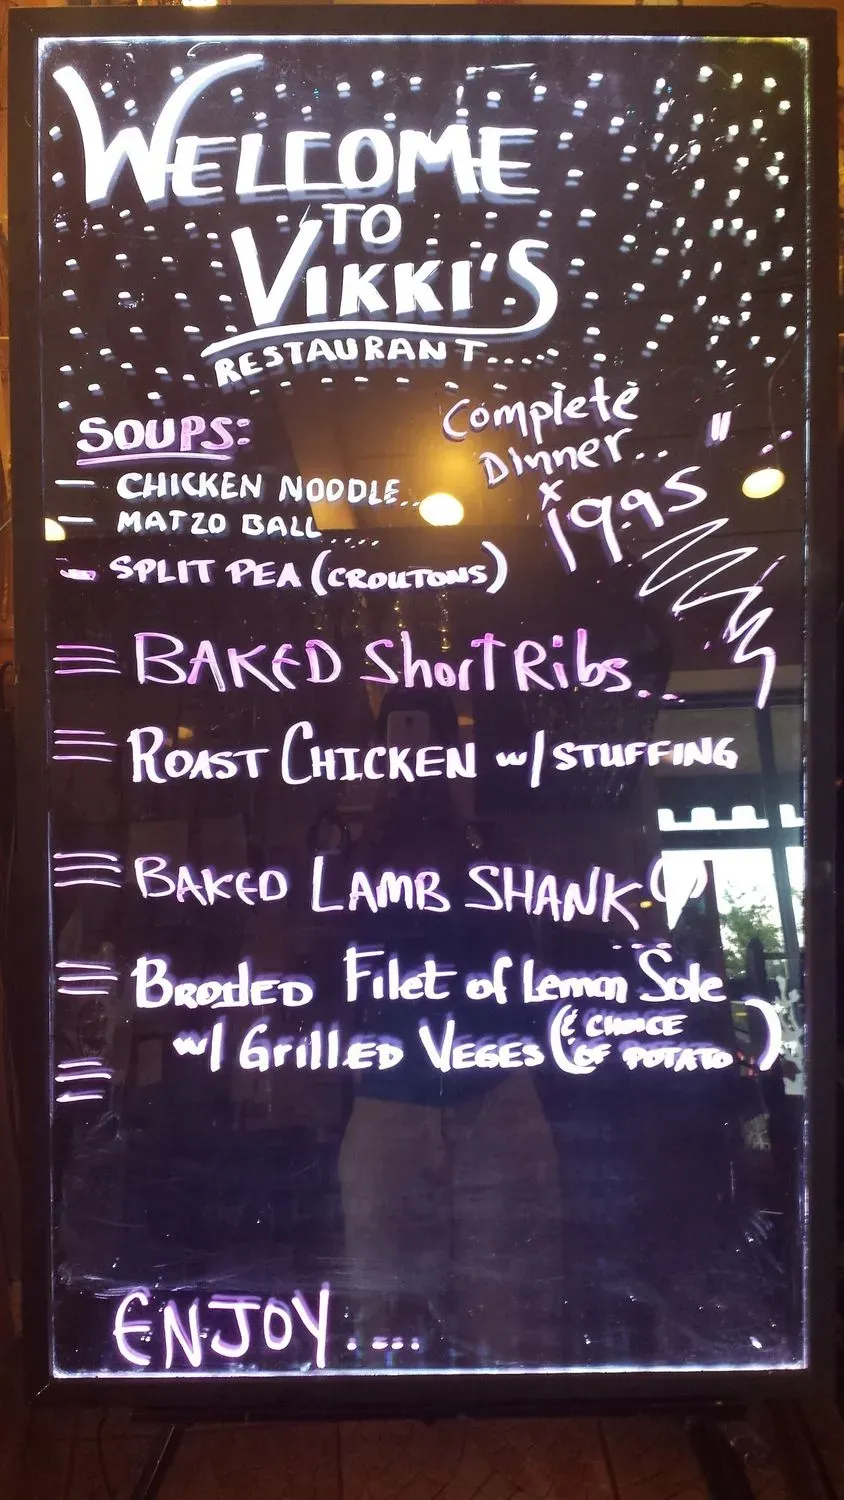 WELCOME
TO
VIKKI'S
RESTAURANT.....
Complete
Dinner..
1995
SOUPS:
- CHICKEN NOODLE..
- MATZO BALL....
- SPLIT PEA (CROUTONS)
BAKED Short Ribs...
ROAST CHICKEN w/ STUFFING
BAKED LAMB SHANK
BROILED Filet of Lemon Sole
w/ GrillED VEGES (& CHOICE
OF POTATO)
ENJOY....